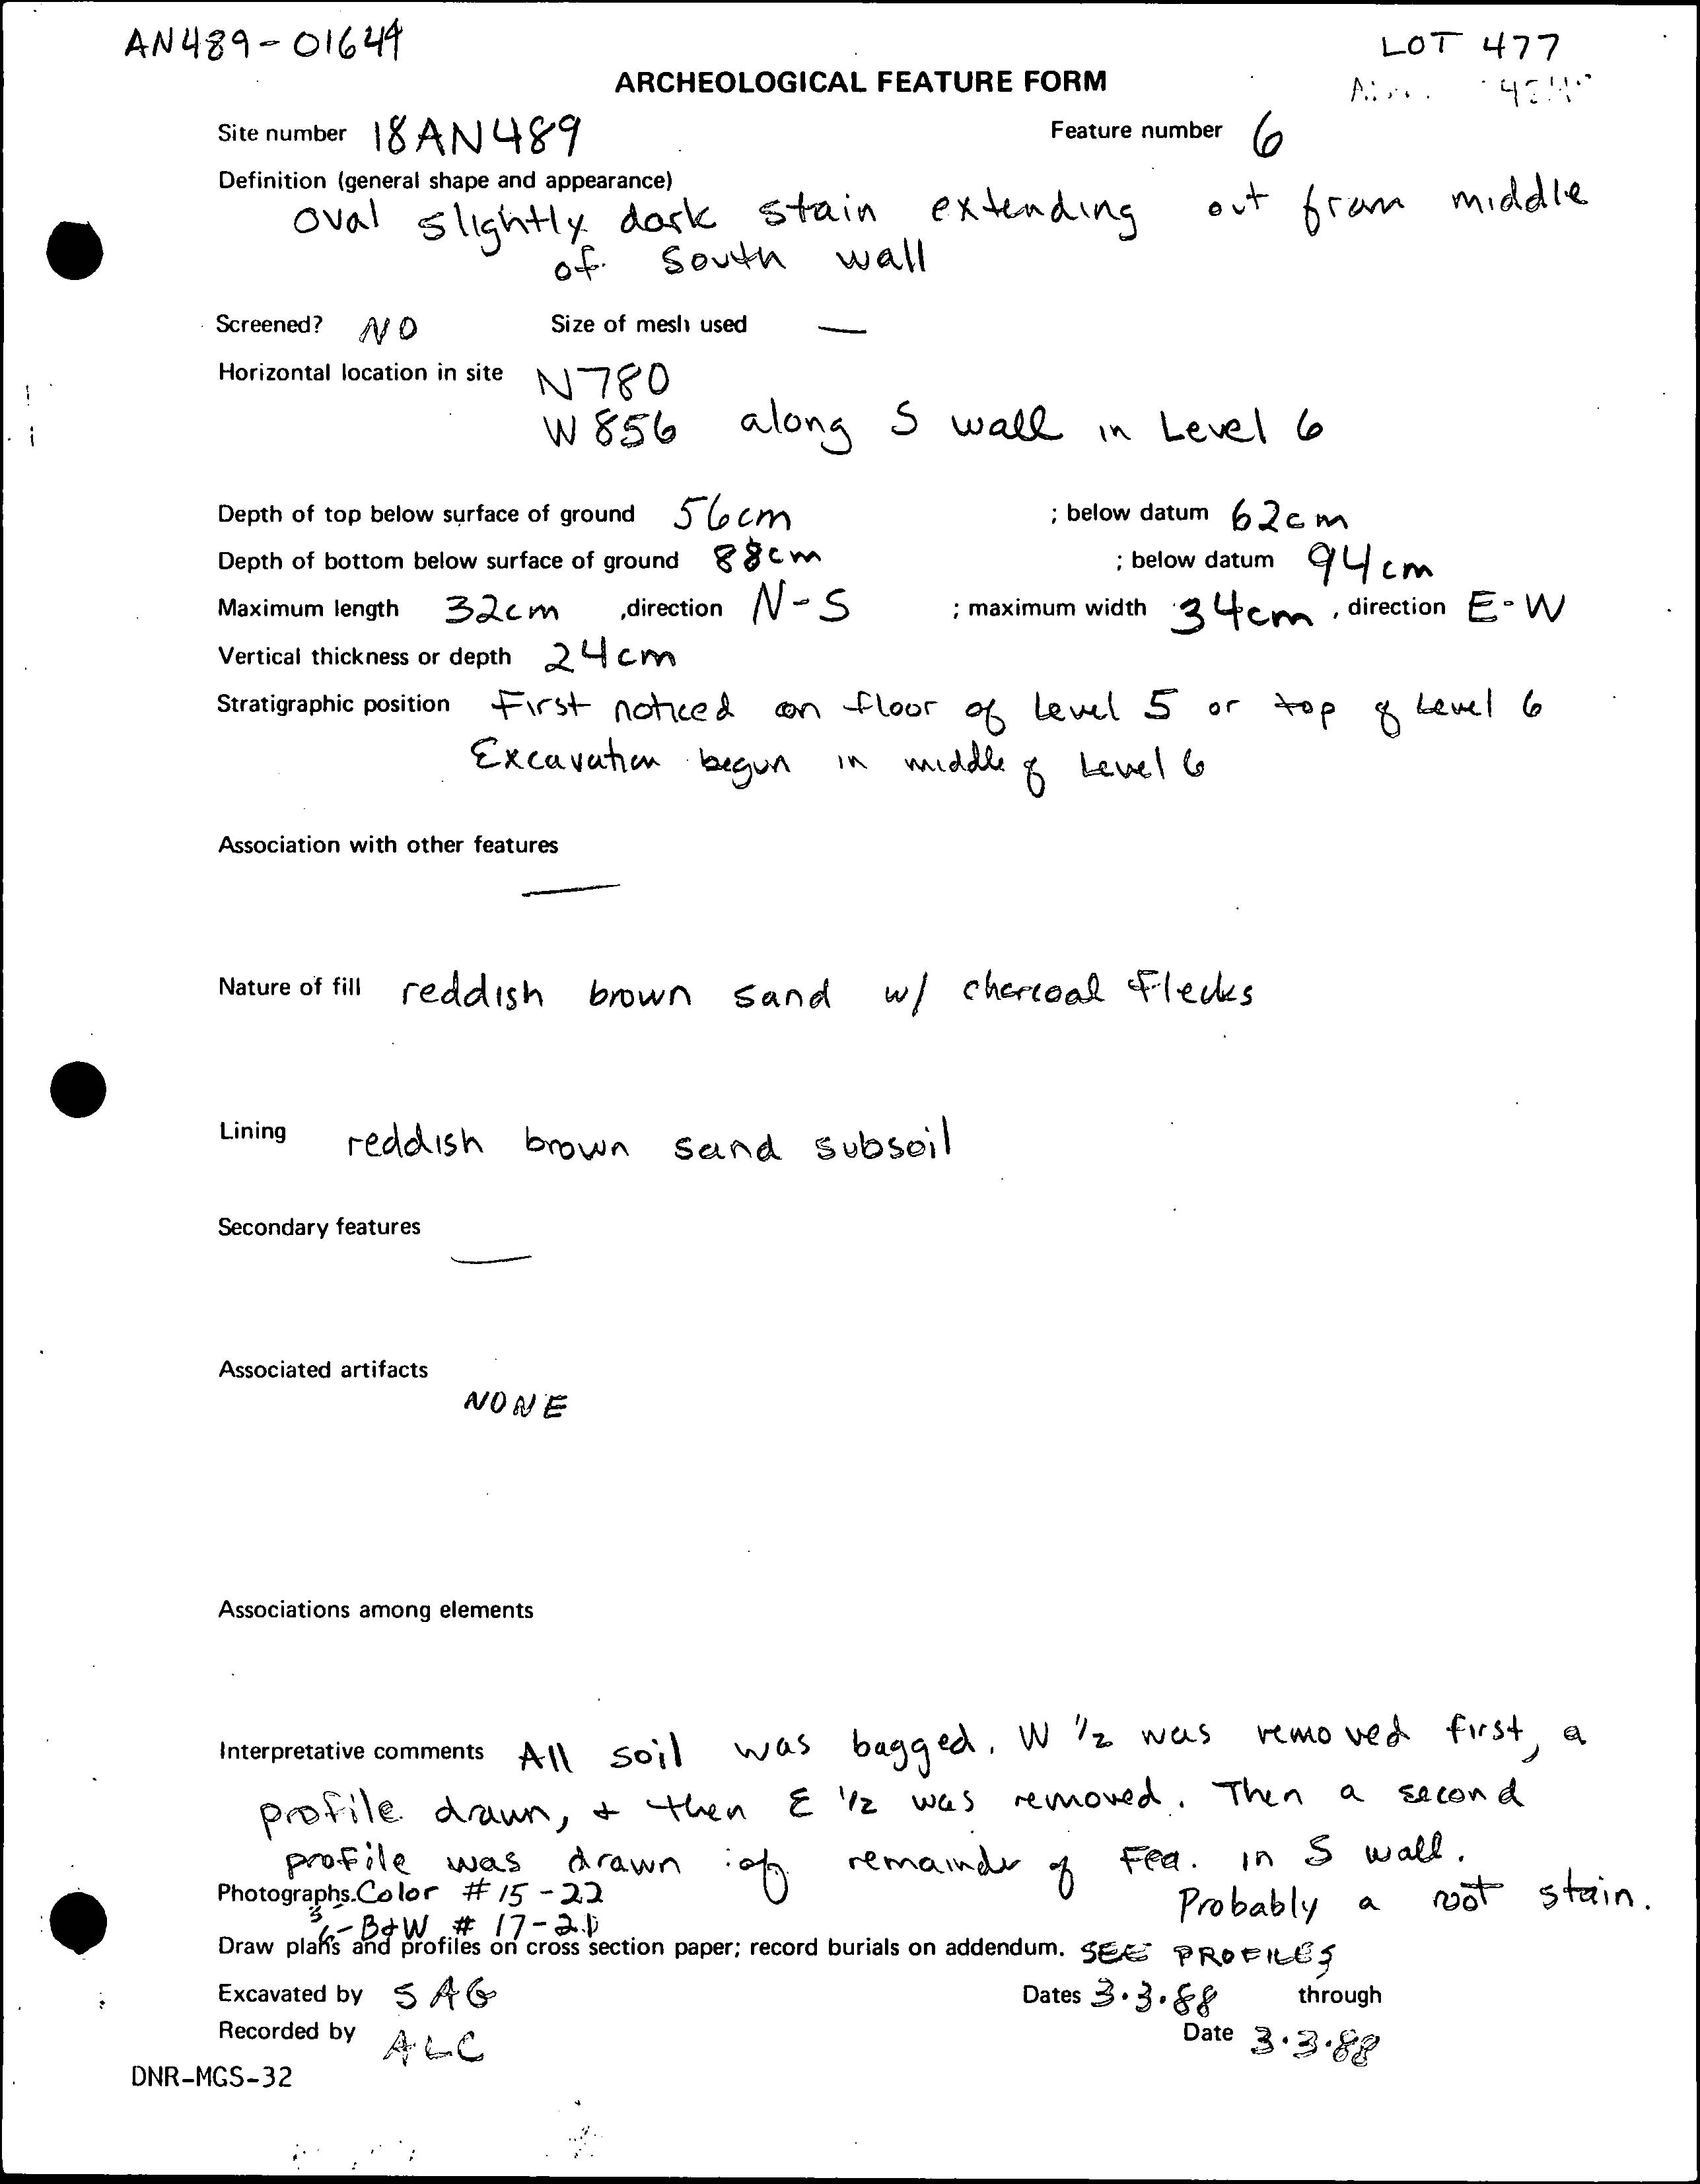 AN489-01644
LOT 477
ARCHEOLOGICAL FEATURE FORM
Site number 18AN489 Feature number 6
Definition (general shape and appearance)
oval slightly dark stain extending out from middle
of south wall
Screened? NO Size of mesh used —
Horizontal location in site N780
W856 along S wall in Level 6
Depth of top below surface of ground 56cm ; below datum 62cm
Depth of bottom below surface of ground 88cm ; below datum 94cm
Maximum length 32cm ,direction N-S ; maximum width 34cm , direction E-W
Vertical thickness or depth 24cm
Stratigraphic position First noticed on floor of Level 5 or top of Level 6
Excavation begun in middle of Level 6
Association with other features
—
Nature of fill reddish brown sand w/ charcoal flecks
Lining reddish brown sand subsoil
Secondary features
—
Associated artifacts
NONE
Associations among elements
Interpretative comments All soil was bagged. W 1/2 was removed first, a
profile drawn, + then E 1/2 was removed. Then a second
profile was drawn of remainder of Fea. in S wall.
Probably a root stain.
Photographs. Color #15-22
B+W # 17-21
Draw plans and profiles on cross section paper; record burials on addendum. SEE PROFILES
Excavated by SAG Dates 3.3.88 through
Recorded by ALC Date 3.3.88
DNR-MGS-32